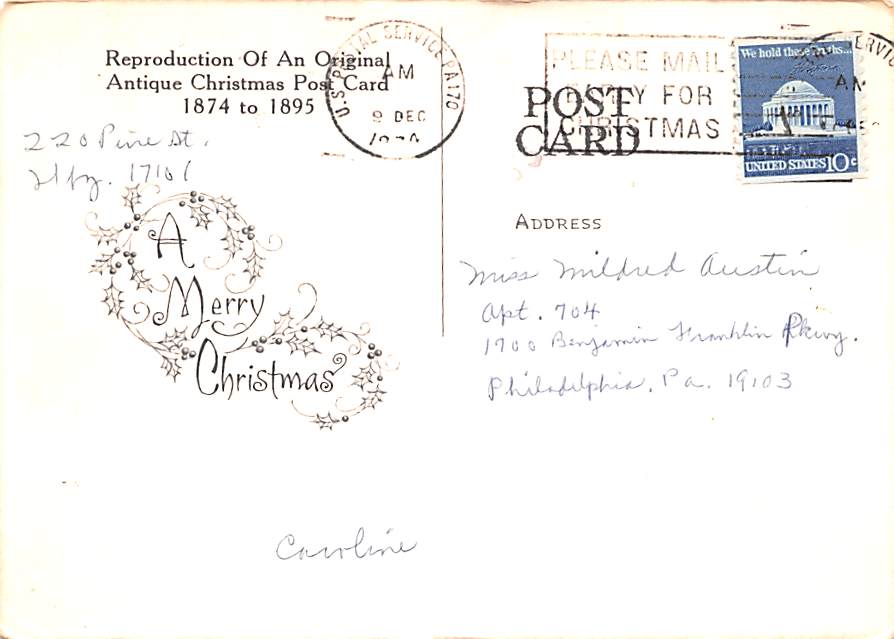 Reproduction Of An Original
Antique Christmas Post Card
1874 to 1895
220 Pine St.
Hbg. 17101
A
Merry
Christmas
Caroline
U.S. POSTAL SERVICE PA 170
AM
9 DEC
PLEASE MAIL
EARLY FOR
CHRISTMAS
POST
CARD
We hold these Truths...
UNITED STATES 10c
ADDRESS
Miss Mildred Austin
Apt. 704
1700 Benjamin Franklin Pkwy.
Philadelphia, Pa. 19103